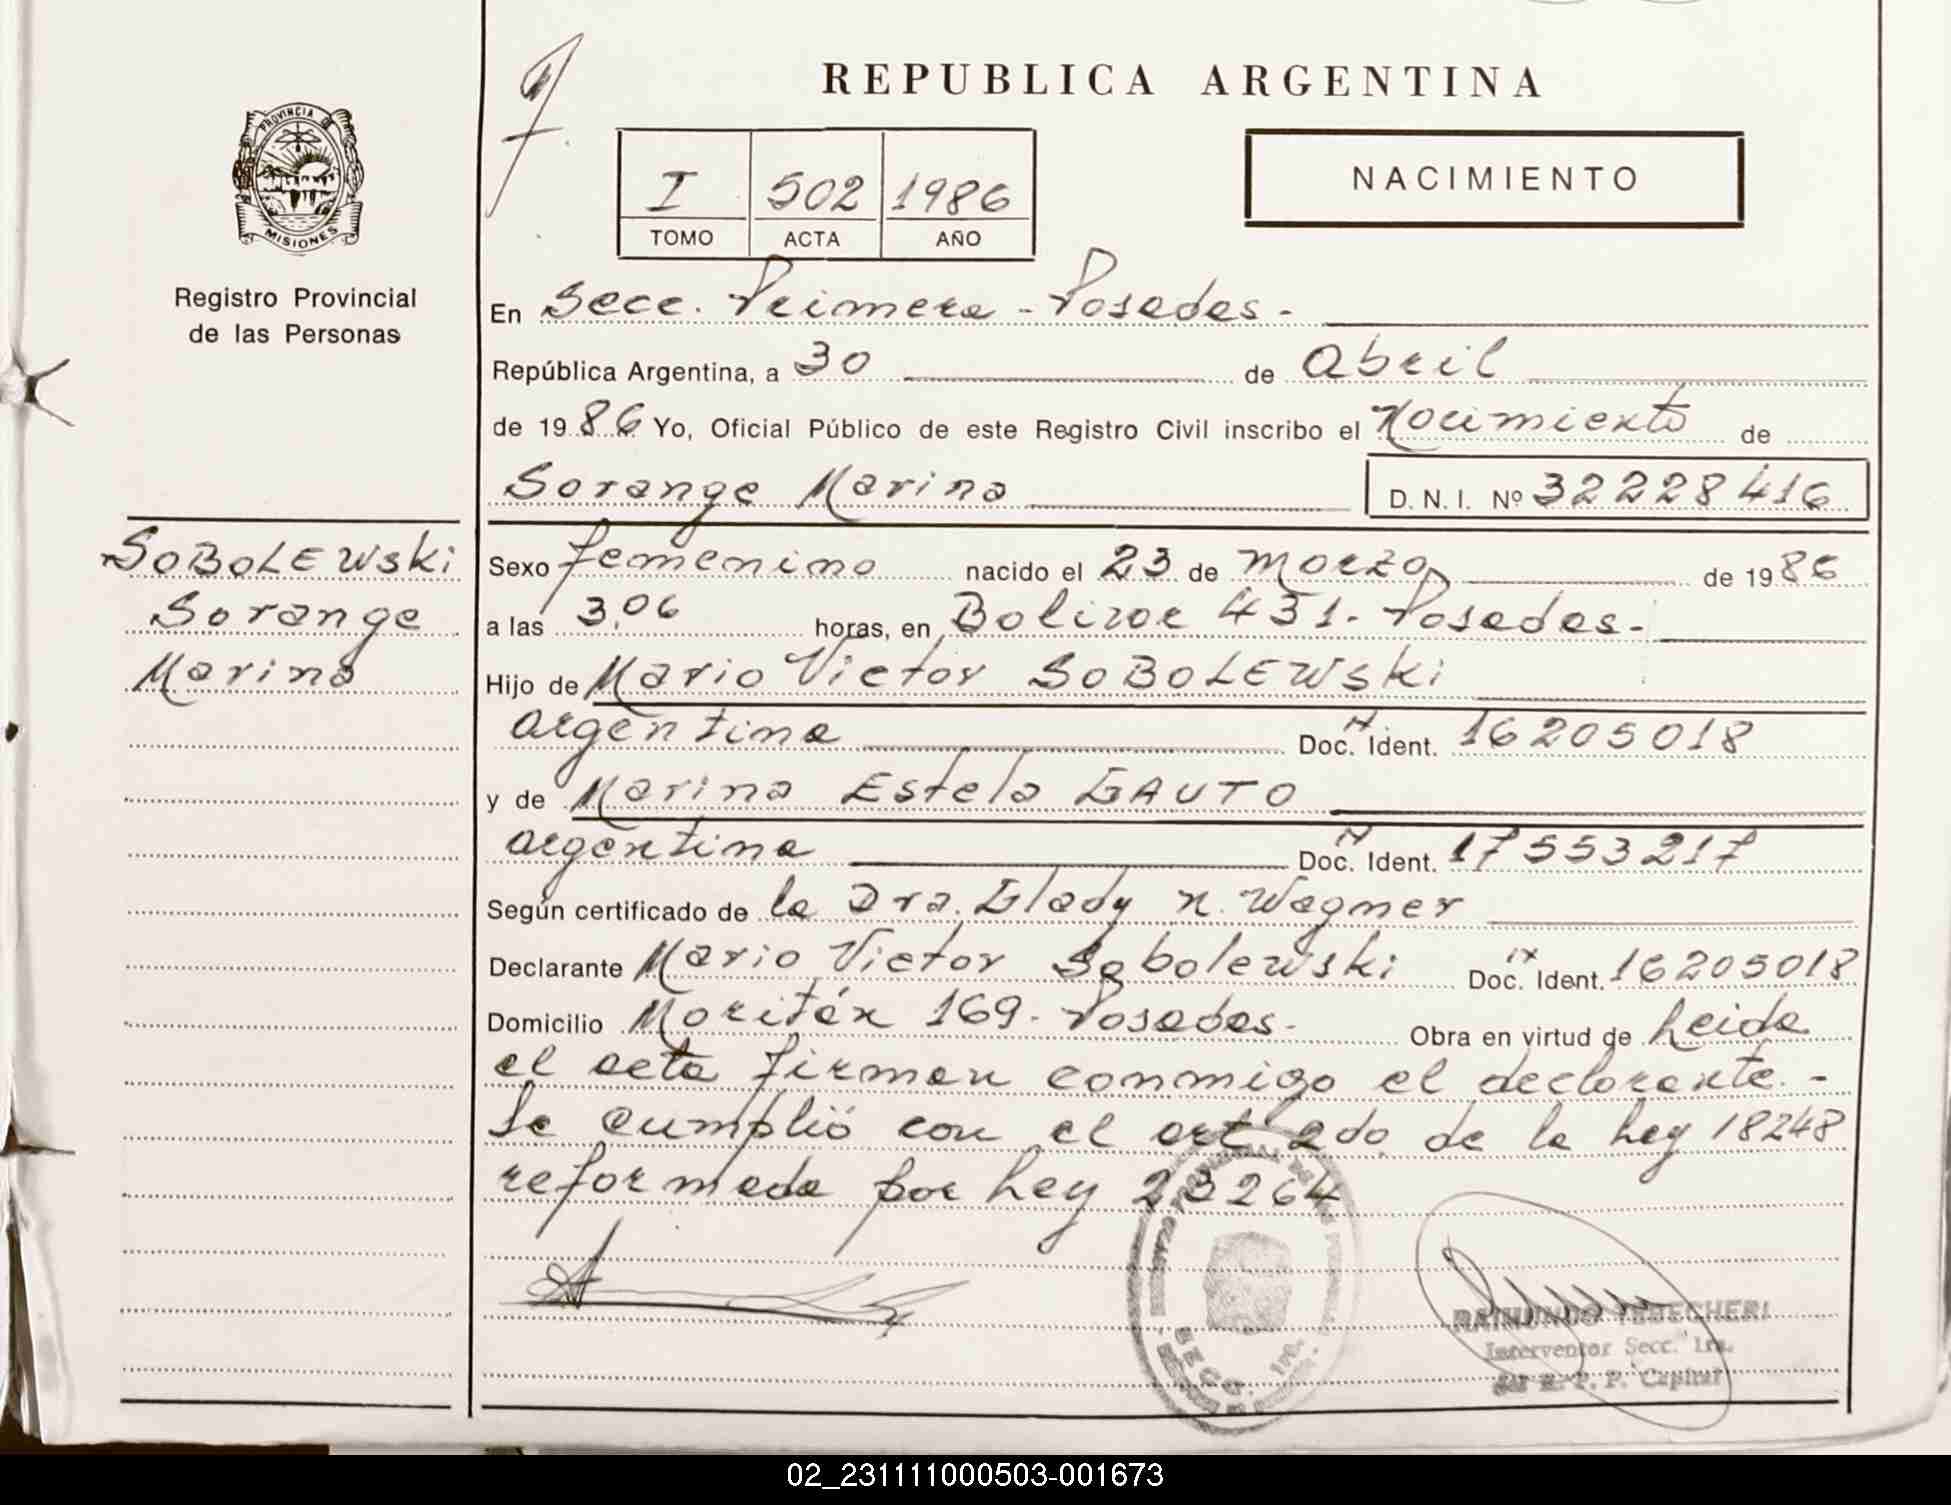 REPUBLICA ARGENTINA
PROVINCIA DE
MISIONES
Registro Provincial
de las Personas
I 502 1986
TOMO ACTA AÑO
NACIMIENTO
En Secc. Primera - Posadas -
República Argentina, a 30 de Abril
de 1986 Yo, Oficial Público de este Registro Civil inscribo el Nacimiento de
Sorange Marina D. N. I. Nº 32228416
SOBOLEWski
Sorange
Marina
Sexo femenino nacido el 23 de Marzo de 1986
a las 3,06 horas, en Bolivar 431 - Posadas -
Hijo de Mario Victor SOBOLEWski
argentina Doc. Ident. 16205018
y de Marina Estela GAUTO
argentina Doc. Ident. 17553217
Según certificado de la Dra. Glady N. Wagner
Declarante Mario Victor Sobolewski Doc. Ident. 16205018
Domicilio Moritán 169 - Posadas - Obra en virtud de Leida
el acta firman conmigo el declarante. -
Se cumplió con el art 2do de la Ley 18248
reformada por Ley 23264
SECC. 1ra.
RAIMUNDO
Interventor Secc. 1ra.
R. P. P. Capital
02_231111000503-001673